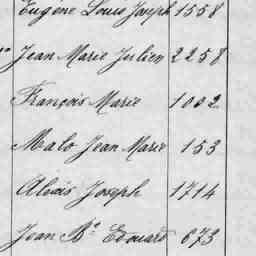 Eugène Louis Joseph 1558
Jean Marie Julien 2258
François Marie 1002
Malo Jean Marie 153
Alexis Joseph 1714
Jean Bte Edouard 673